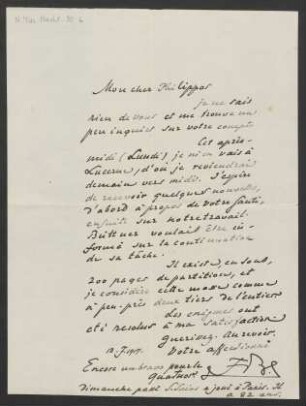 Mon cher Philippos
je ne sais
rien de vous et me trouve un
peu inquiet sur votre compte
Cet après-
midi (Lundi) je m'en vais à
Lucerne, d'où je reviendrai
demain vers midi. J'espère
de recevoir quelques nouvelles,
d'abord à propos de votre santé,
ensuite sur notre travail.
Büttner voulait être in-
formé sur la continuation
de sa tâche.
Il existe, en tout,
200 pages de partitions, et
je considère cette masse comme
à-peu-près deux tiers de l'entier
des énigmes ont
été resolus à ma satisfaction
Guérissez. Au revoir.
Votre affectionné
Encore un bravo pour le
Quatuor.
Dimanche passé a joué à Paris. Il
a 82 ans.